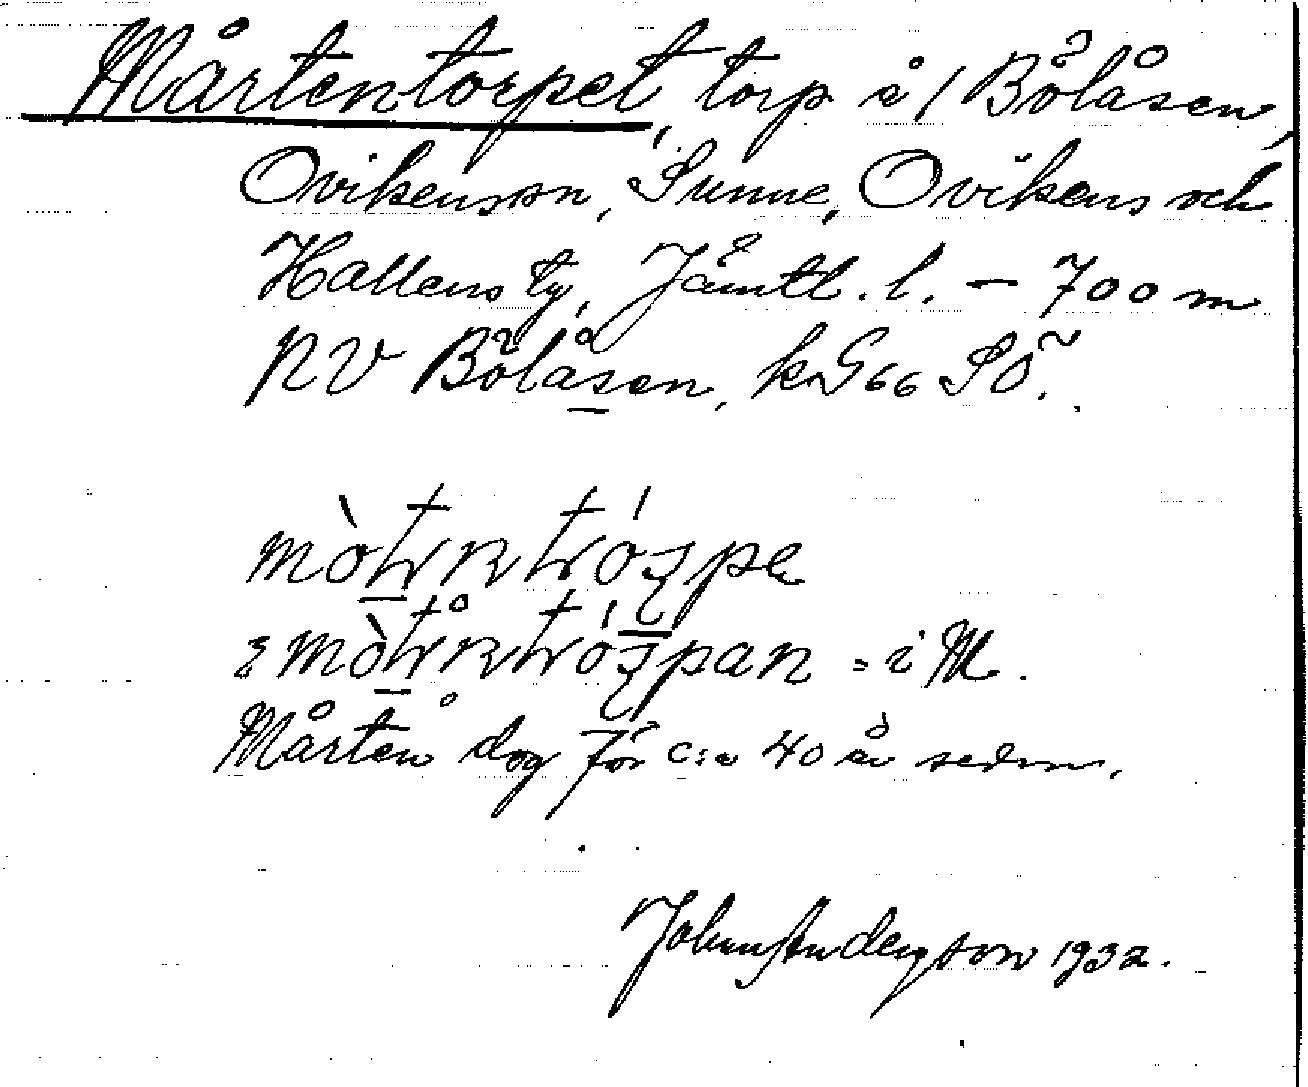 Mårtentorpet, torp å 1 Bölåsen,
Ovikens sn, Sunne, Ovikens och
Hallens tg, Jämtl. l. – 700 m
NV Bölåsen, k G66 SÖ.
= i M.
Mårten dog för c:a 40 år sedan.
John Anderson 1932.